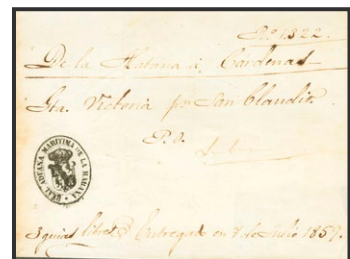 Nº 1322.
De la Habana á Cardenas
Gta. Victoria por San Claudio
P. O.
REAL ADUANA MARITIMA DE LA HABANA
3 guias libres Entregado en 8 de Julio 1857.